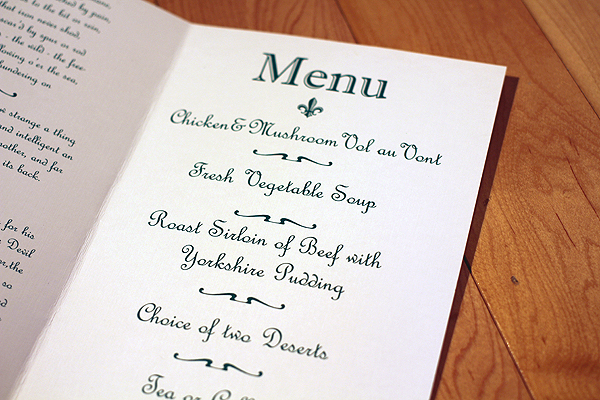 ushed by pain,
that iron never shod,
scar'd by spur or rod
- the wild - the free-
llowing o'er the sea,
hundering on
e strange a thing
and intelligent an
other, and far
its back.
for his
Devil
or, the
so
d
Menu
Chicken & Mushroom Vol au Vont
Fresh Vegetable Soup
Roast Sirloin of Beef with
Yorkshire Pudding
Choice of two Deserts
Tea or